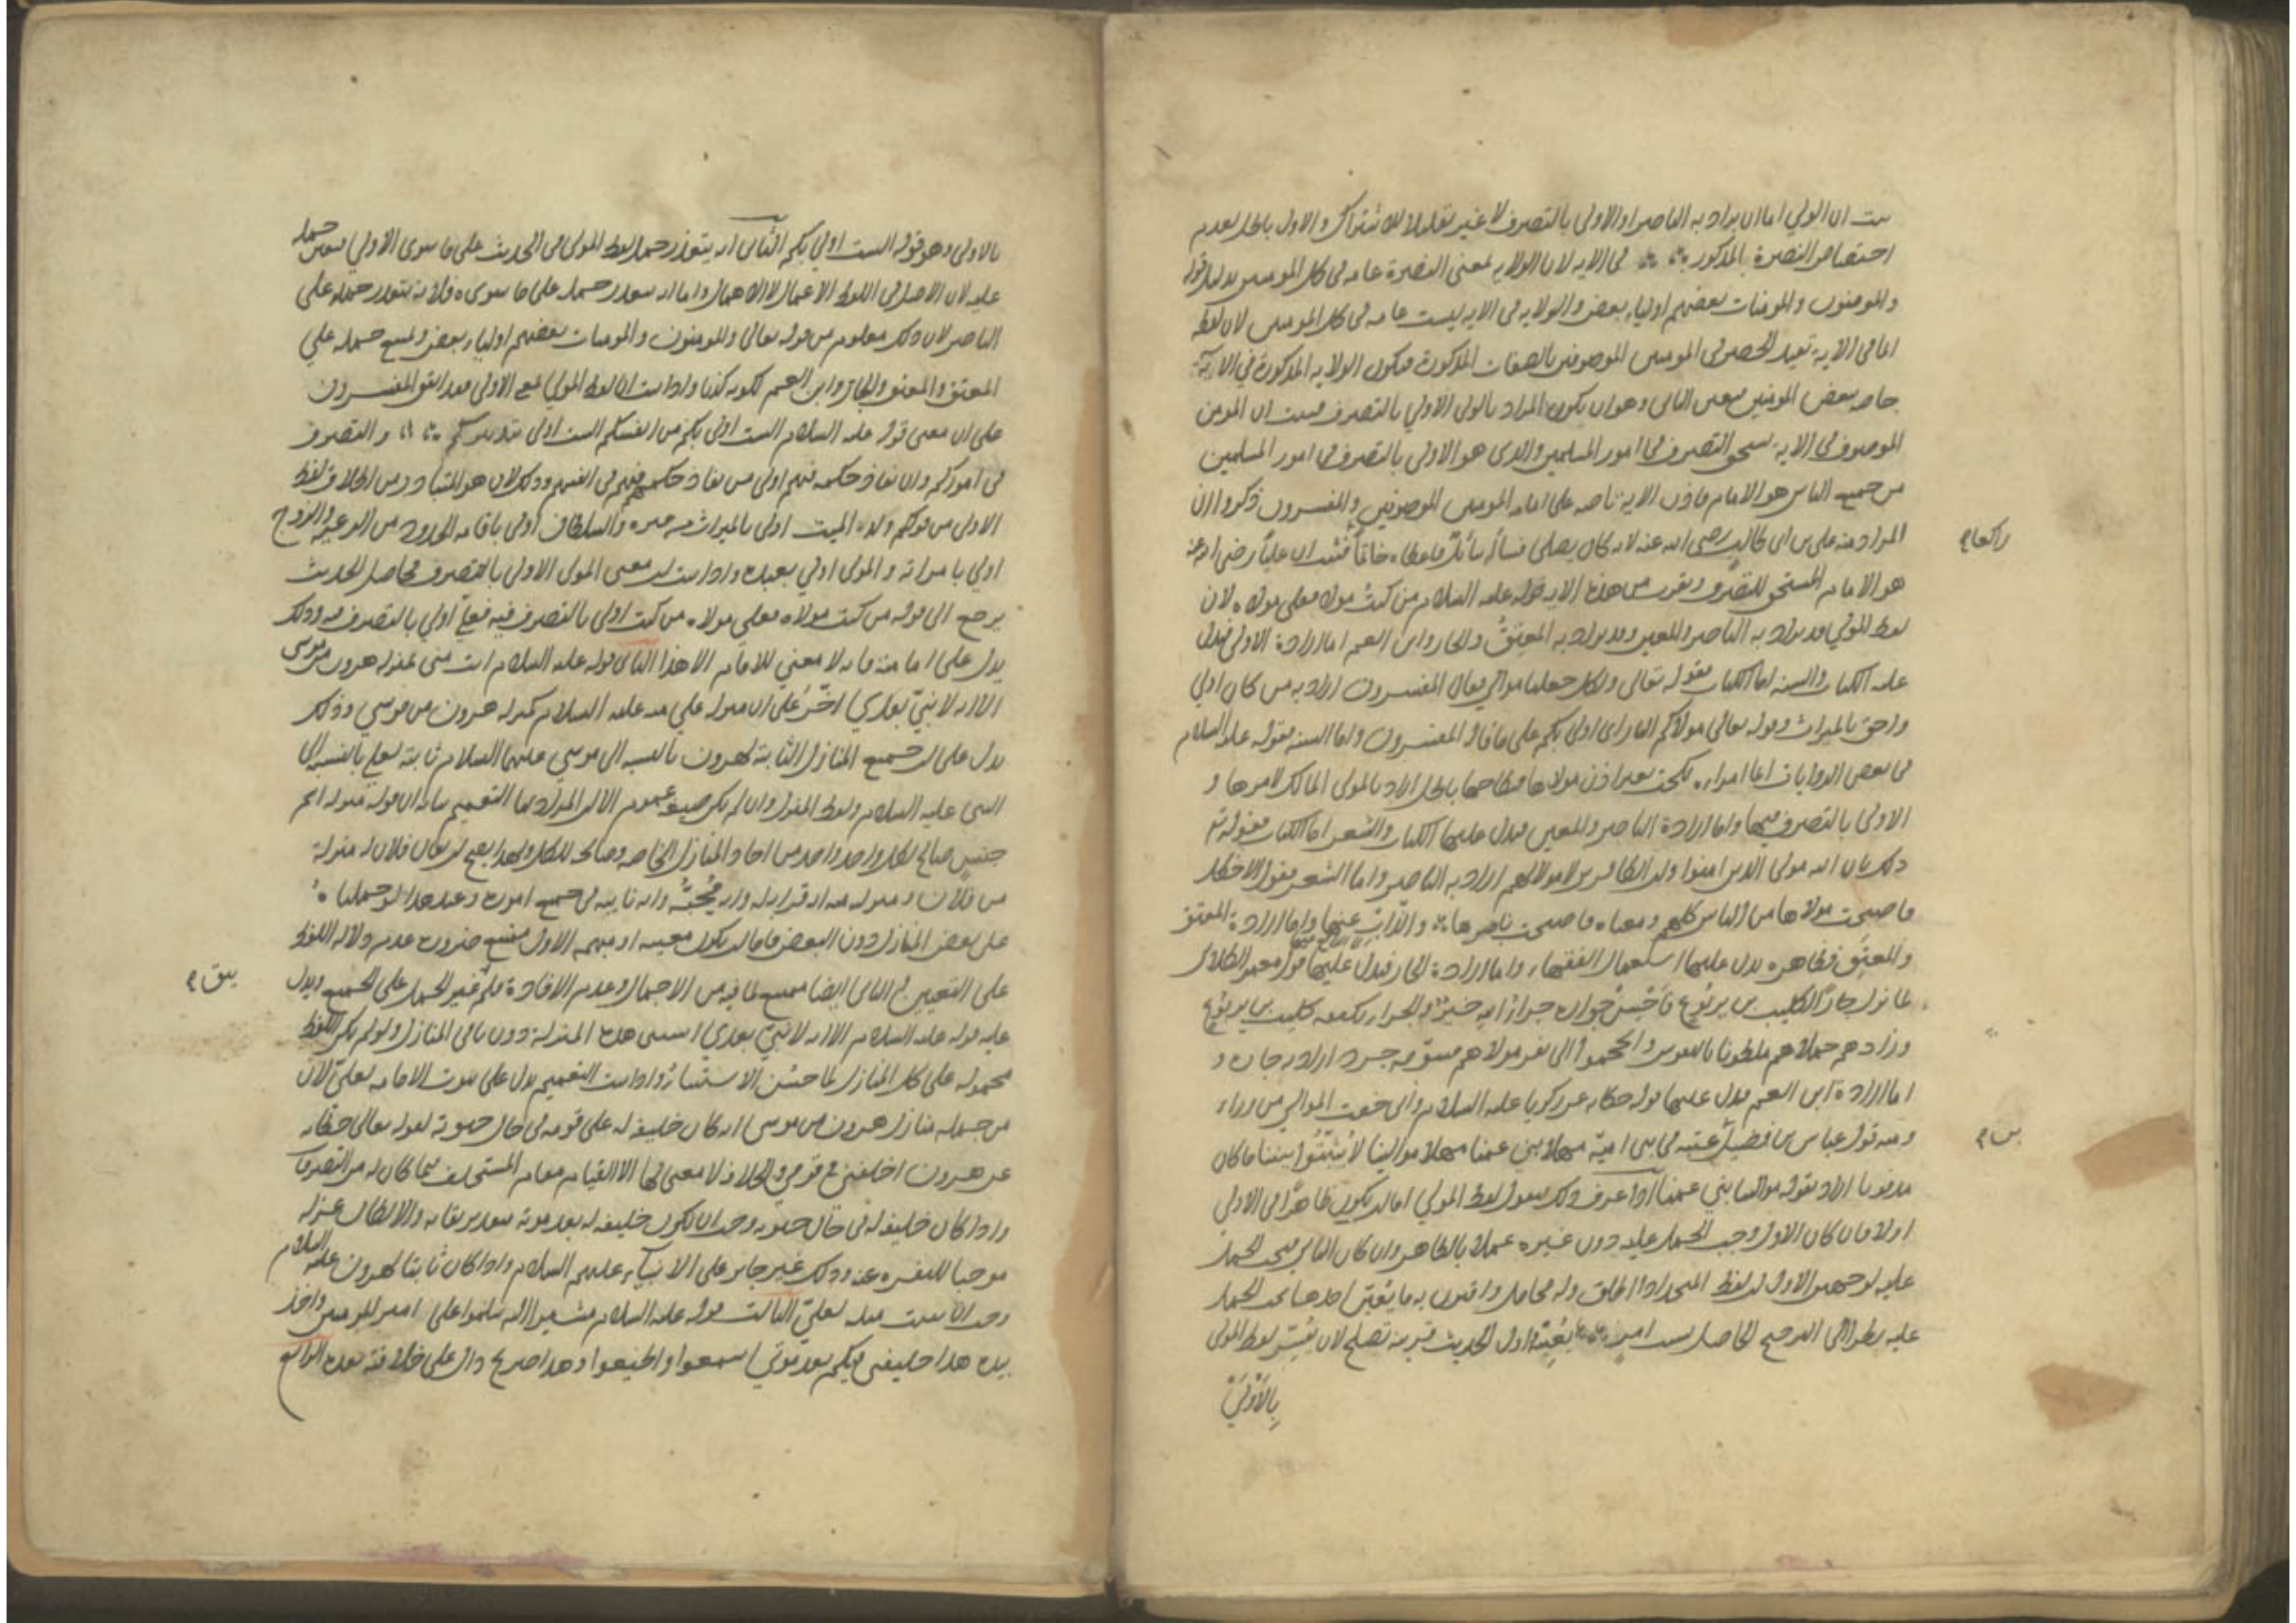 ان الولي اما ان يراد به الناصر او الاولى بالتصرف لا غير تقليلا للاشتراك والاول باطل لعدم
اختصاص النصرة بالمذكور في الاية لان الولاية بمعنى النصرة عامة في كل المومنين بدليل قوله
والمومنون والمومنات بعضهم اولياء بعض والولاية في الاية ليست عامة في كل المومنين لان لفظة
انما في الاية تفيد الحصر في المومنين الموصوفين بالصفات المذكورة فتكون الولاية المذكورة في الاية
خاصة ببعض المومنين فتعين الثاني وهو ان يكون المراد بالولي الاولى بالتصرف فثبت ان المومن
الموصوف في الاية يستحق التصرف في امور المسلمين والذي هو الاولى بالتصرف في امور المسلمين
من جميع الناس هو الامام فاذن الاية ناصة على امامة المومنين الموصوفين والمفسرون ذكروا ان
المراد منه علي بن ابي طالب رضي الله عنه لانه كان يصلي فسأله سائل فاعطاه خاتما فثبت ان عليا رضي الله عنه
راكعا
هو الامام المستحق للتصرف ويقرب من هذه الاية قوله عليه السلام من كنت مولاه فعلي مولاه لان
لفظ المولى قد يراد به الناصر والمعين وقد يراد به المعتق والجار وابن العم اما ارادة الاولى فيدل
عليه الكتاب والسنة اما الكتاب فقوله تعالى ولكل جعلنا موالي فقال المفسرون اراد به من كان اولى
واحق بالميراث وقوله تعالى مولاكم النار اي اولى بكم على ما قال المفسرون واما السنة فقوله عليه السلام
في بعض الروايات ايما امراة نكحت بغير اذن مولاها فنكاحها باطل اراد بالمولى المالك لامرها و
الاولى بالتصرف فيها واما ارادة الناصر والمعين فيدل عليها الكتاب والشعر اما الكتاب فقوله تع
ذلك بان الله مولى الذين امنوا وان الكافرين لا مولى لهم اراد به الناصر واما الشعر فقول الاخطل
فاصبحت مولاها من الناس كلهم ومعناه فاصبحت ناصرها والذاب عنها واما ارادة المعتق
والمعتق فظاهره يدل عليها استعمال الفقهاء واما ارادة الجار فيدل عليها قول معمر الكلابي
لما نزل جارا لكليب بن يربوع فاحسن جواره جزا الله خيرا والجزاء بكفه كليب بن يربوع
وزادهم حمدا هم خلطونا بالنفوس والجموا الى نصر مولاهم مسومة جردا اراد به جاره و
اما ارادة ابن العم فيدل عليها قوله حكاية عن زكريا عليه السلام واني خفت الموالي من وراءي
ومنه قول عباس بن فضيل عتبة في بني امية مهلا بني عمنا مهلا موالينا لا تنبشوا بيننا ما كان
بن
مدفونا اراد بقوله موالينا بني عمنا اذا عرف ذلك فنقول لفظ المولى اما ان يكون ظاهرا في الاولى
اولا فان كان الاول وجب الحمل عليه دون غيره عملا بالظاهر وان كان الثاني فيجب الحمل
عليه لوجهين الاول ان لفظ المتحد اذا اطلق وله محامل واقترن به ما يعين احدها يجب الحمل
عليه نظرا الى الترجيح الحاصل اول الحديث قرينة تصلح لان يفسر لفظ المولى
بالاولى
بالاولى وهو قوله الست اولى بكم الثاني انه يتعذر حمل لفظ المولى في الحديث على ما سوى الاولى فتعين حمله
عليه لان الاصل في اللفظ الاعمال لا الاهمال واما انه يتعذر حمله على ما سواه فلانه يتعذر حمله على
الناصر لان ذلك معلوم من قوله تعالى والمومنون والمومنات بعضهم اولياء بعض ويمتنع حمله على
المعتق والمعتق والجار وابن العم لكونه كذبا واذا ثبت ان لفظ المولى بمعنى الاولى فقد اتفق المفسرون
على ان معنى قوله عليه السلام الست اولى بكم من انفسكم الست اولى بتدبيركم والتصرف
في اموركم وان نفاذ حكمه فيهم اولى من نفاذ حكمهم في انفسهم وذلك لان هو المتبادر من اطلاق لفظ
الاولى من قولكم ولد الميت اولى بالميراث من غيره والسلطان اولى باقامة الحدود من الرعية والزوج
اولى بامراته والمولى اولى بعبده واذا ثبت ان معنى المولى الاولى بالتصرف فحاصل الحديث
يرجع الى قوله من كنت مولاه فعلي مولاه من كنت اولى بالتصرف فيه فعلي اولى بالتصرف فيه وذلك
يدل على امامته فانه لا معنى للامام الا هذا الثاني قوله عليه السلام انت مني بمنزلة هرون من موسى
الا انه لا نبي بعدي اخبر على ان منزلة علي منه عليه السلام كمنزلة هرون من موسى وذلك
يدل على ان جميع المنازل الثابتة لهرون بالنسبة الى موسى عليهما السلام ثابتة لعلي بالنسبة الى
النبي عليه السلام ولفظ المنزلة وان لم يكن صيغة عموم الا ان المراد بها التعميم بيانه ان قوله منزلة اسم
جنس صالح لكل واحد واحد من احاد المنازل الخاصة وصالحة للكل ولهذا يصح ان يقال فلان له منزلة
من فلان ومنزلته منه انه قرابة له وانه محبه وانه نايبه في جميع اموره وعند هذا لو حملناه
على بعض المنازل دون البعض فاما ان يكون معينة او مبهمة الاول ممتنع ضرورة عدم دلالة اللفظ
على التعيين والثاني ايضا ممتنع لما فيه من الاجمال وعدم الافادة فلم غير الحمل على الجميع ويدل
يبق
عليه قوله عليه السلام الا انه لا نبي بعدي استثنى هذه المنزلة دون باقي المنازل ولو لم يكن اللفظ
محمولا على كل المنازل لما حسن الاستثناء واذا ثبت التعميم يدل على ثبوت الامامة لعلي لان
من جملة منازل هرون من موسى انه كان خليفة له على قومه في حال حيوته لقوله تعالى حكاية
عن هرون اخلفني في قومي والخلافة لا معنى لها الا القيام مقام المستخلف فيما كان له من التصرفات
واذا كان خليفة له في حال حيوته وجب ان يكون خليفة له بعد موته بتقدير بقايه والا لكان عزله
موجبا للنفرة عنه وذلك غير جايز على الانبياء عليهم السلام واذا كان ثابتا لهرون عليه السلام
وجب ان يثبت مثله لعلي الثالث قوله عليه السلام مشيرا اليه سلموا على امير المومنين واخذ
بيده هذا خليفتي فيكم بعد موتي اسمعوا واطيعوا وهذا صريح دال على خلافته بعده الرابع